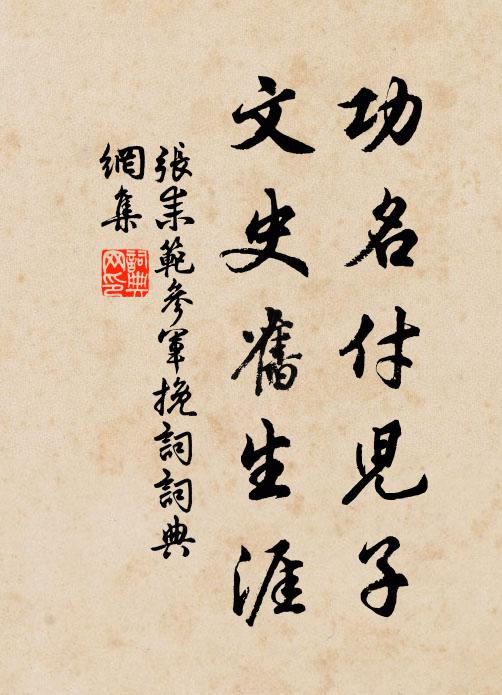 功名付兒子
文史舊生涯
張耒範參軍挽詞詞典
網集
詞典網印